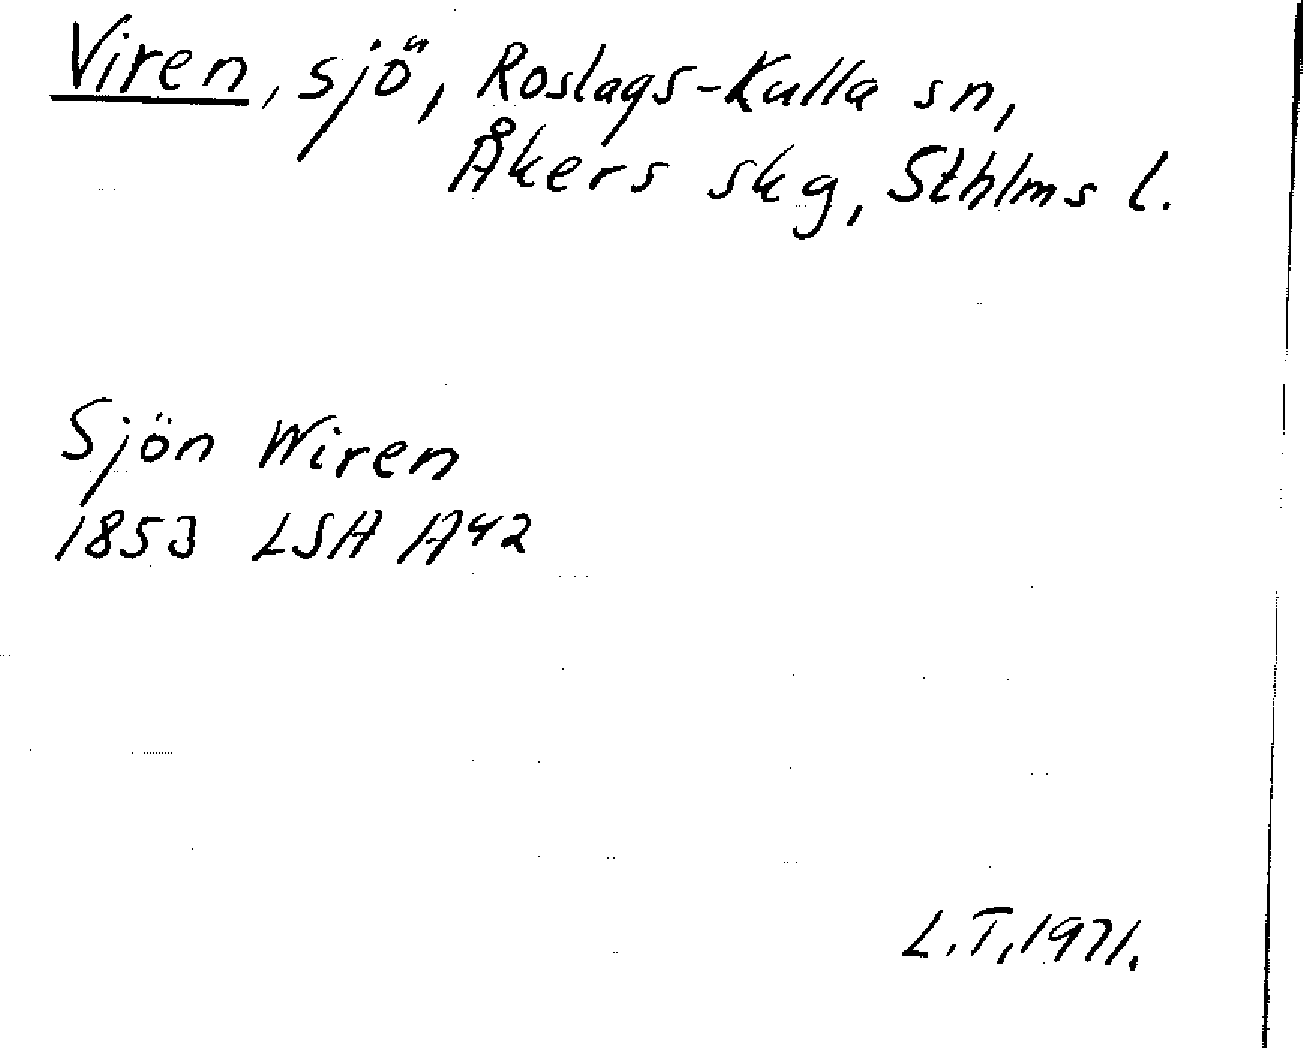 Viren, sjö, Roslags-Kulla sn,
Åkers skg, Sthlms l.
Sjön Wiren
1853 LSA A42
L.T. 1971.